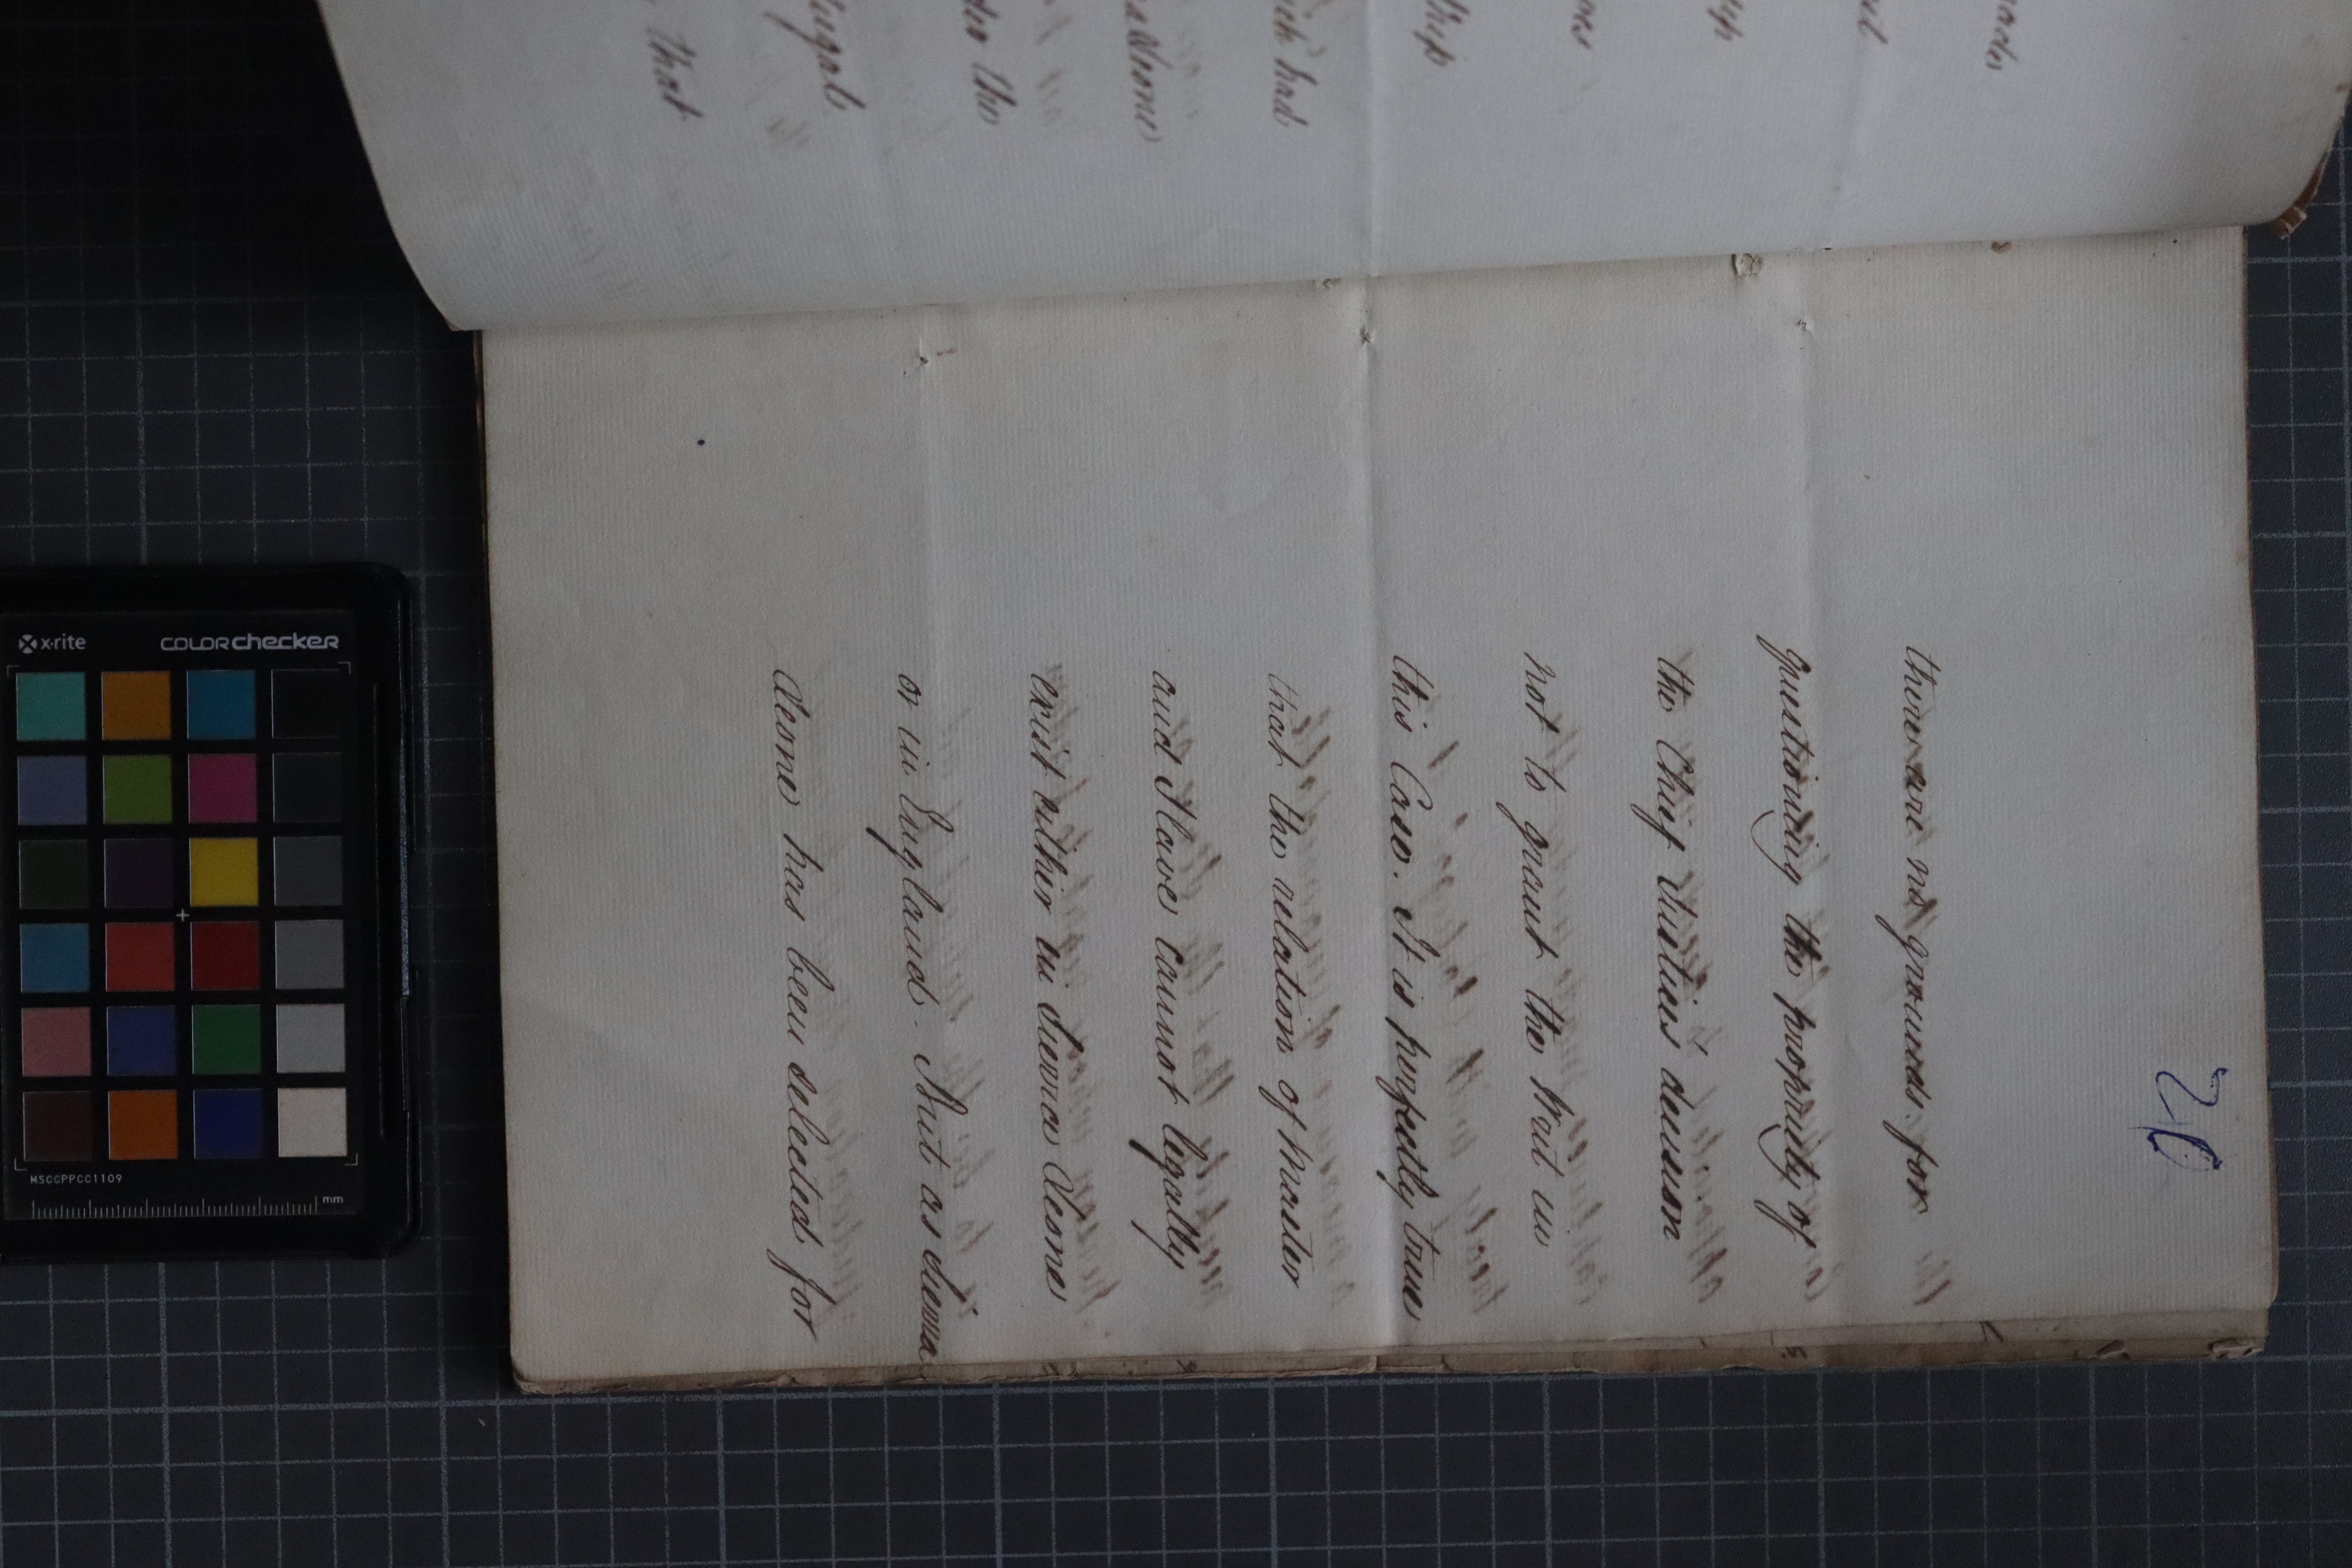 20
there are no grounds for
questioning the propriety of
the Chief Justices decision
not to grant the Writ in
this Case. It is perfectly true
that the relation of Master
and Slave cannot legally
exist either in Sierra Leone
or in England. But as Sierra
Leone has been selected for
ich had
a Leone
the
that
x-rite
COLORchecker
MSCCPPCC1109
mm